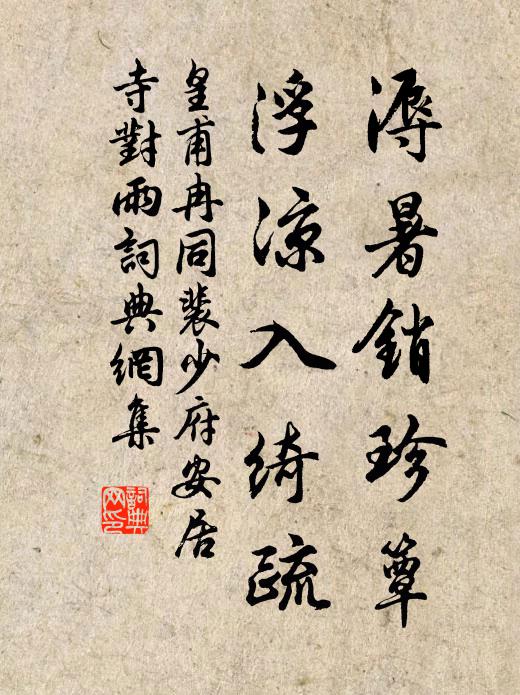 溽暑銷珍簟
浮涼入綺疏
皇甫冉同裴少府安居
寺對雨詞典網集
詞典
网印